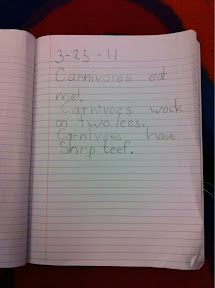 3-25-11
Carnivores eat
met.
Carnivoes wock
on two lees.
Carnivoes have
Shrp teef.